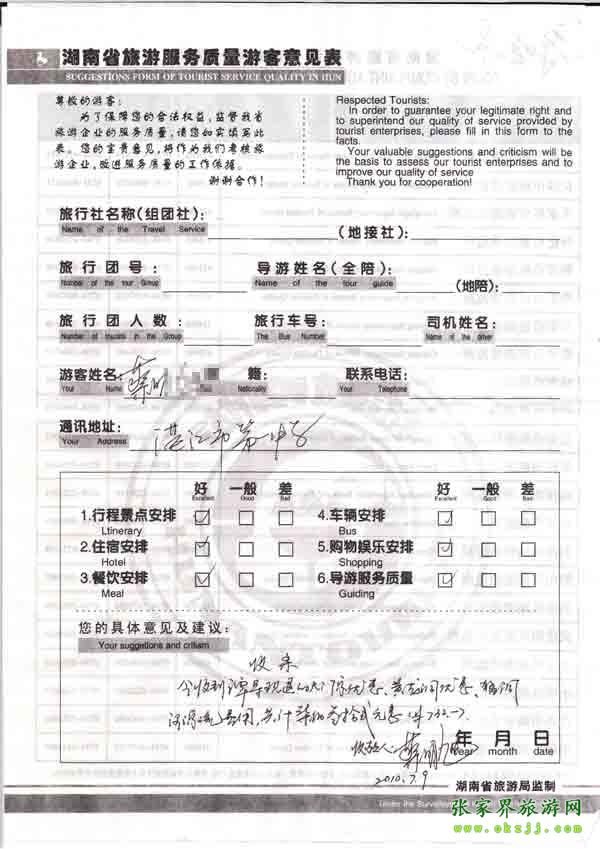 湖南省旅游服务质量游客意见表
SUGGESTIONS FORM OF TOURIST SERVICE QUALITY IN HUN
尊敬的游客:
为了保障您的合法权益,监督我省
旅游企业的服务质量,请您如实填写此
表。您的宝贵意见,将作为我们考核旅
游企业,改进服务质量的工作依据。
谢谢合作!
Respected Tourists:
In order to guarantee your legitimate right and
to superintend our quality of service provided by
tourist enterprises, please fill in this form to the
facts.
Your valuable suggestions and criticism will be
the basis to assess our tourist enterprises and to
improve our quality of service
Thank you for cooperation!
旅行社名称(组团社): (地接社):
Name of the Travel Service
旅行团号: 导游姓名(全陪): (地陪):
Number of the tour Group Name of the tour guide
旅行团人数: 旅行车号: 司机姓名:
Number of tourists in the Group The Bus Number Name of the driver
游客姓名: 籍: 联系电话:
Your Name Nationality Your Telephone
通讯地址: 湛江市第一中学
Your Address
好 一般 差 好 一般 差
Excellent Good Bad Excellent Good Bad
1.行程景点安排 4.车辆安排
Ltinerary Bus
2.住宿安排 5.购物娱乐安排
Hotel Shopping
3.餐饮安排 6.导游服务质量
Meal Guiding
您的具体意见及建议:
Your suggetions and critism
收条
今收到谭导现退
年 月 日
year month date
2010.7.9
湖南省旅游局监制
Under the Surveillance
张家界旅游网
www.okzjj.com